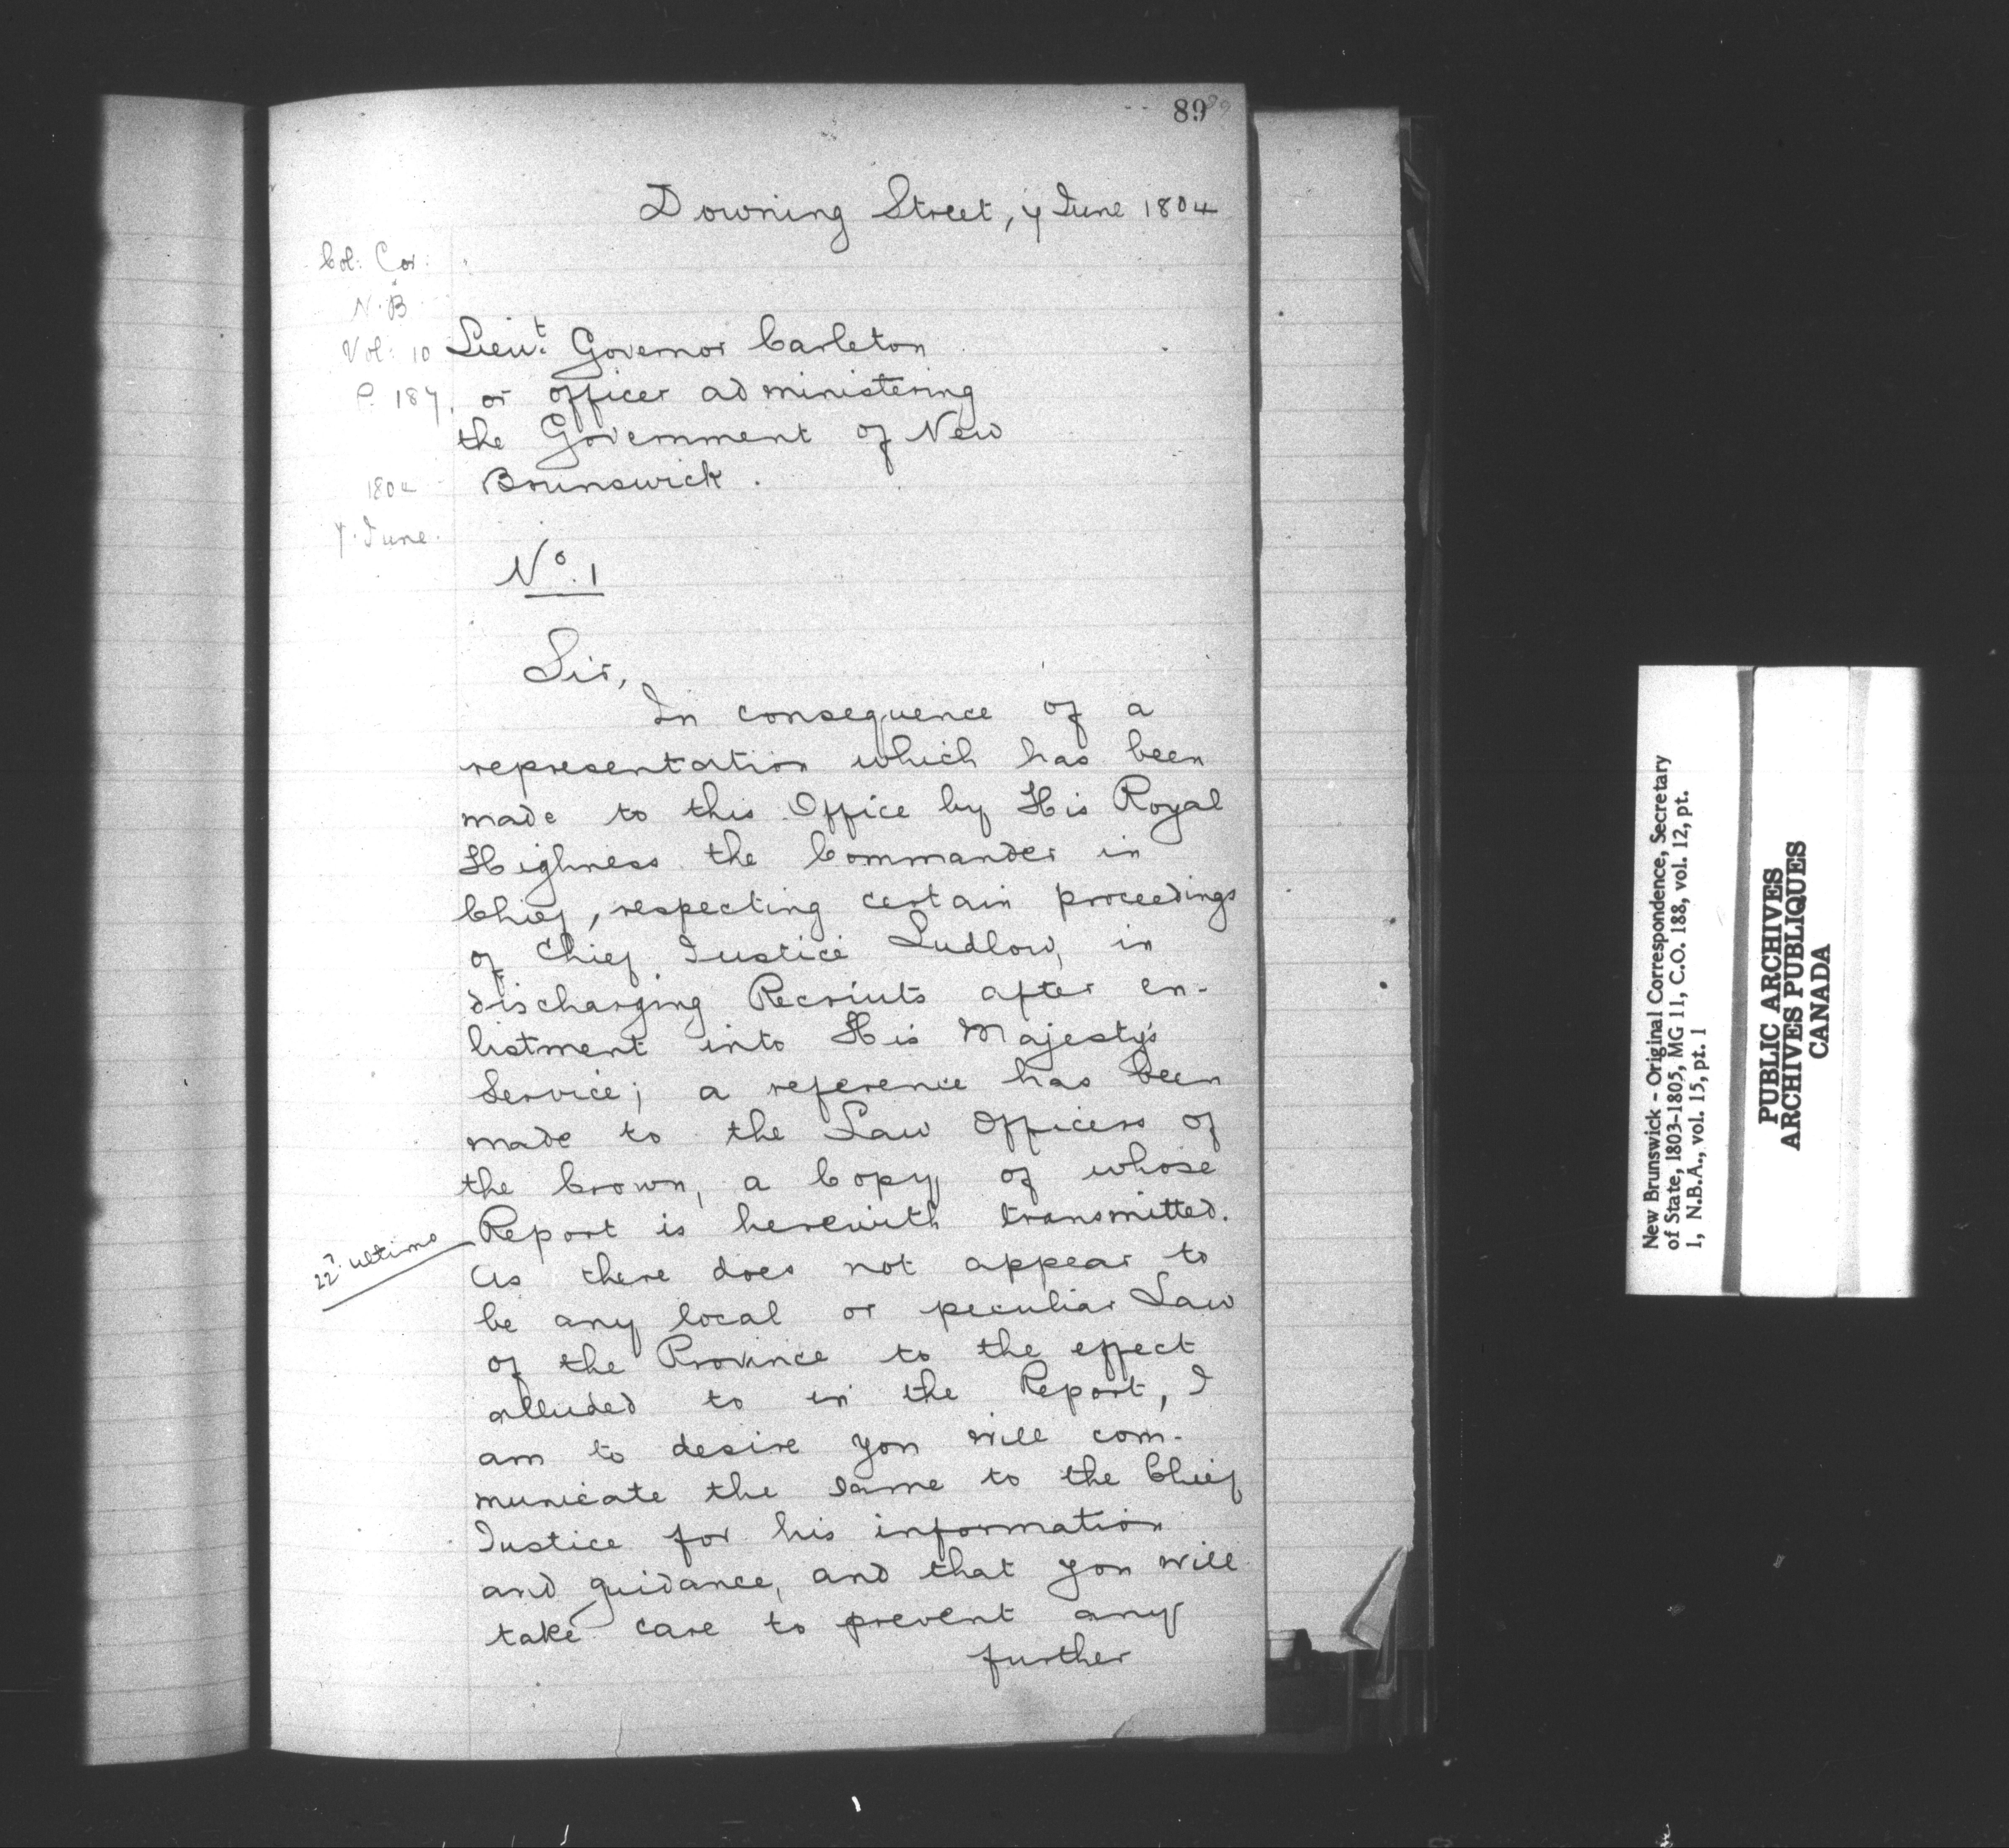 89
Downing Street, 7 June 1804
Col: Cor:
N.B
Vol: 10
P. 187.
1804
7. June.
Lieut. Governor Carleton
or officer administering
the Government of New
Brunswick.
No. 1
Sir,
In consequence of a
representation which has been
made to this Office by His Royal
Highness the Commander in
Chief, respecting certain proceedings
of Chief Justice Ludlow, in
discharging Recruits after en-
listment into His Majesty's
Service; a reference has been
made to the Law Officers of
the Crown, a Copy of whose
Report is herewith transmitted.
22d. ultimo
As there does not appear to
be any local or peculiar Law
of the Province to the effect
alluded to in the Report, I
am to desire you will com-
municate the same to the Chief
Justice for his information
and guidance, and that you will
take care to prevent any
further
New Brunswick - Original Correspondence, Secretary
of State, 1803-1805, MG 11, C.O. 188, vol. 12, pt.
1, N.B.A., vol. 15, pt. 1
PUBLIC ARCHIVES
ARCHIVES PUBLIQUES
CANADA